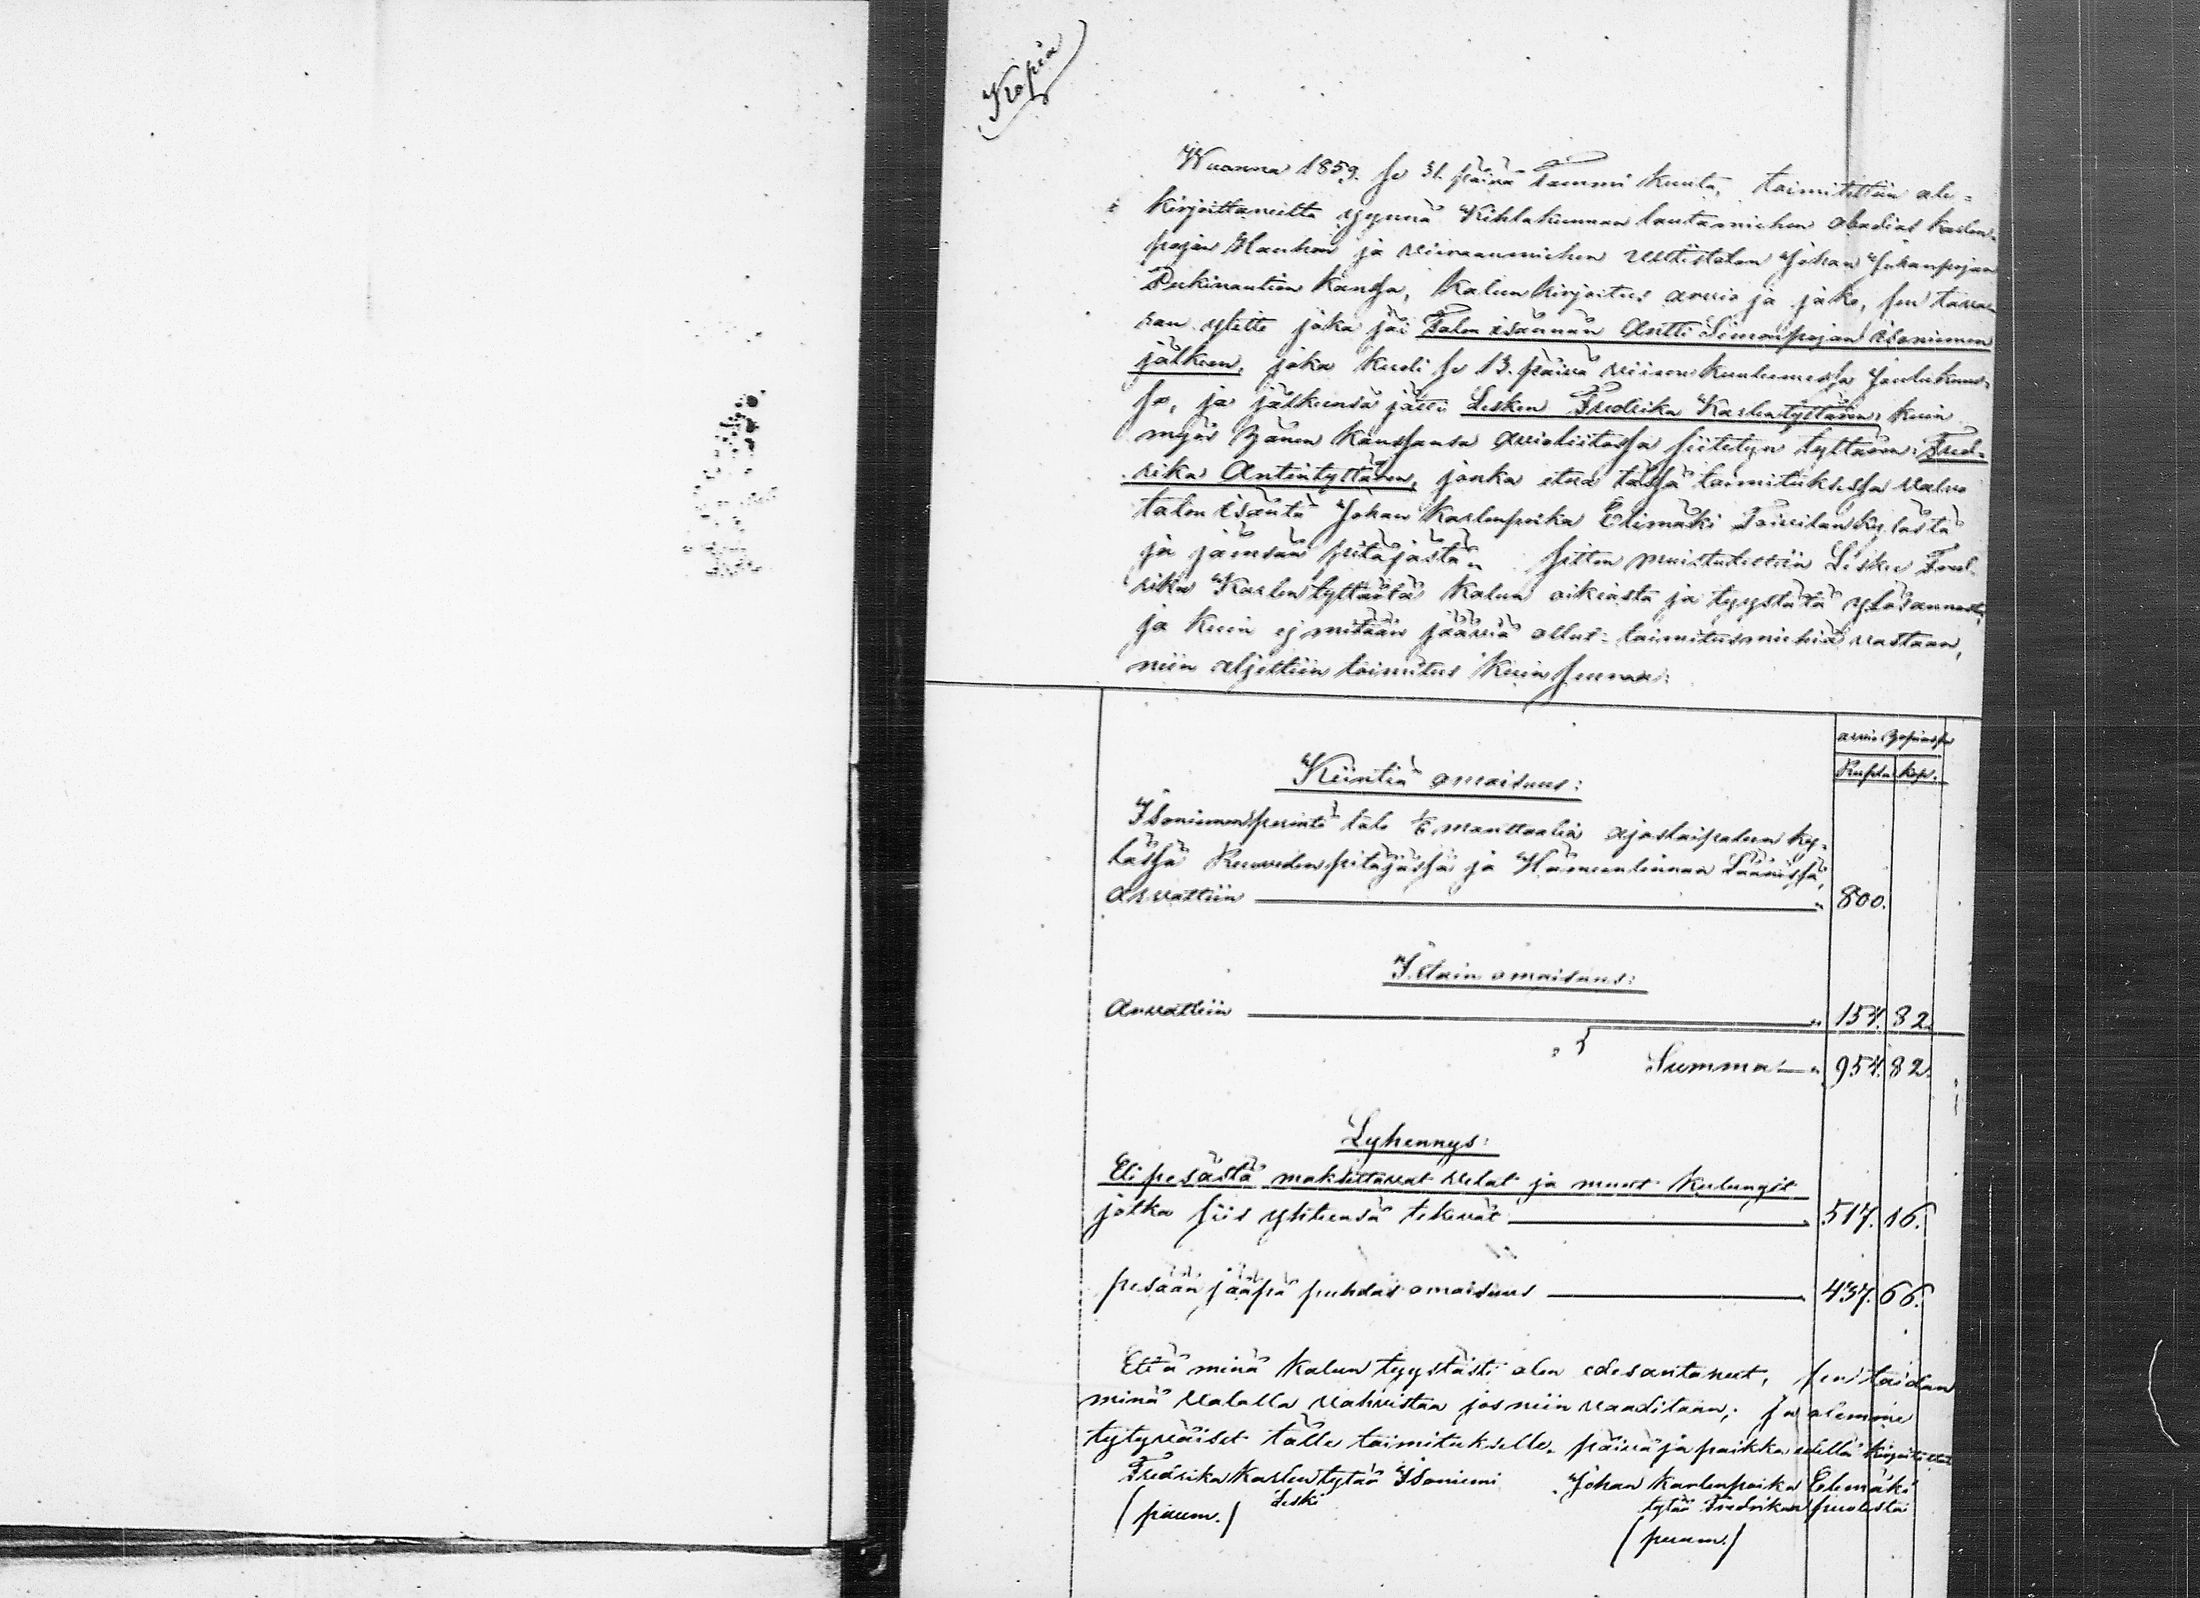 Kopia
Wuonna 1859. se 31. päivä Tammi kuuta, toimitettiin ale-
kirjoittaneilta ynnä Kihlakunnan lautamiehen Abadias Karlen-
pojan Hauhon ja viiraanmiehen Johan Johanpojan
kanssa, Kalun kirjoitus arvio ja jako, sen tava-
ran ylitte joka jäi Talon isännän Antti Simonpojan Isoniemen
jälkeen, joka kuoli se 13. päivä viimeu kuluneessa Joulukuus-
sa, ja jälkeensä jätti Lesken Fredrika Karlentyttären, kuin
myös hänen kanssansa avioliitossa siitetyn tyttären: Fred-
rika Antintyttären, jonka etua tässä toimituksessa valvo
talon isäntä Johan Karlenpoika Elimäki Toivilan kylästä
ja jämsän pitäjästä. Sitten muistutettiin Leskee Fred-
rika Karlentyttäätä kalun oikiasta ja tyystätä ylösannosta,
ja kuin ej mitään jääviä ollut toimitusmiehiä vastaan,
niin aljettiin toimitus kuin seuraa:
arvio Hopiassa
Rupla kop.
Kiintiä omaisuus:
Isoniemen perintö talo 1/6 manttaalia Ajostaipaleen ky-
lässä Keuruden pitäjässä ja Hämeenlinnan Läänissä,
Arvattiin " 800.
Irtain omaisuus:
Arvattiin " 154. 82.
Summa " 954. 82.
Lyhennys:
Eli pesästä maksettavat velat ja muut kulungit
jotka siis yhteensä tekevät 517. 16.
pesään jääpä puhdas omaisuus 437. 66.
Että minä kalun tyystästi olen edesantanut, sen taidan
minä valalla vahvistaa jos niin vaaditaan; ja olemme
tytyväiset tälle toimitukselle. päivä ja paikka edellä kirjoitettu
Fredrika Karlentytär Isoniemi Johan Karlenpoika Elimäki
Leski tytär Fredrikan puolesta
(puum.) (puum.)